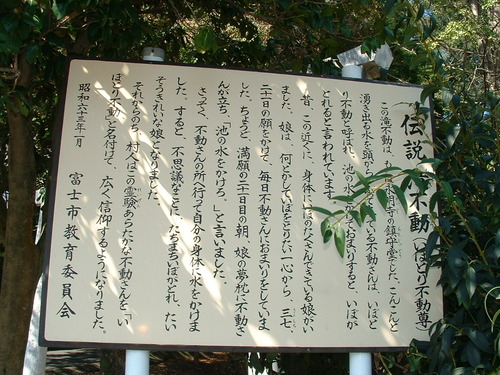 伝説 不動(いぼとり不動尊)
この滝不動は、も 寺の鎮守堂でした。こんこんと
湧き出る水を頭から ている不動さんは、いぼと
り不動と呼ばれ、池の水を てもおまいりすると、いぼが
とれると言われています。
昔、この近くに、身体にいぼのたくさんできている娘がい
ました。娘は、何とかしていぼをとりたい一心から、三七、
二十一日の願をかけて、毎日不動さんにおまいりをしていま
した。ちょうど、満願の二十一日の朝、娘の夢枕に不動さ
んが立ち、「池の水をかけろ。」と言いました。
さっそく、不動さんの所へ行って自分の身体に水をかけま
した。すると、不思議なことに、たちまちいぼがとれ、たい
そうきれいな娘となりました。
それからのち、村人はこの霊験あらたかな不動さんを、「い
ぼとり不動」と名付けて、広く信仰するようになりました。
昭和六十三年一月
富士市教育委員会